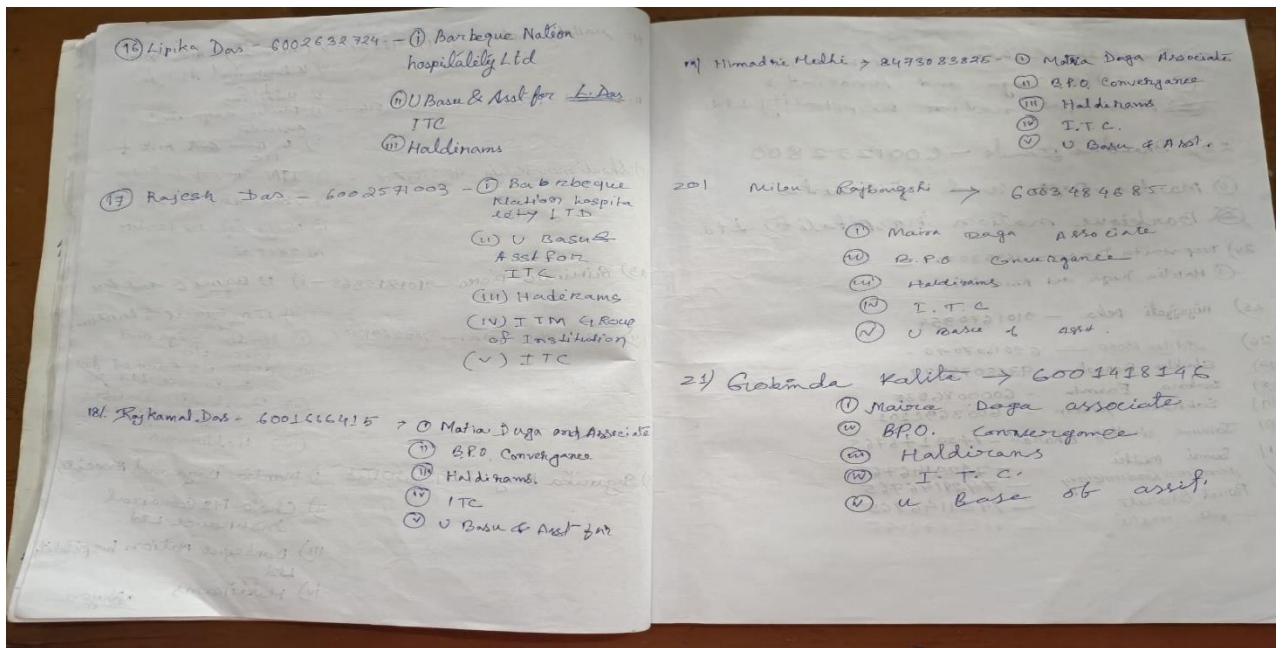 (16) Lipika Das - 6002632724 - (i) Barbeque Nation
hospitality Ltd
(ii) U Basu & Asst for L. Das
ITC
(iii) Haldirams
(17) Rajesh Das - 6002571003 - (i) Babrbeque
Nation hospita
lity ITD
(ii) U Basu &
Asst for
ITC
(iii) Haderams
(iv) ITM Group
of Institution
(v) ITC
18/. Rajkamal Das - 6001666415 → (i) Matia Duga and Associate
(ii) B.P.O. Convergance
(iii) Haldirams.
(iv) ITC
(v) U Basu & Asst for
19/ Himadri Medhi → 8473083825 - (i) Matra Daga Associate
(ii) B.P.O. Convergance
(iii) Haldirams
(iv) I.T.C.
(v) U Basu & Asst.
20/ Rajbongshi → 6003484685
(i) Maira Daga Associate
(ii) B.P.O Convergance
(iii) Haldirams
(iv) I.T.C
(v) U Basu & Asst.
21/ Gobinda Kalita → 6001418146
(i) Maira Daga associate
(ii) BP.O. Convergance
(iii) Haldirans
(iv) I.T.C.
(v) u Base of assit.